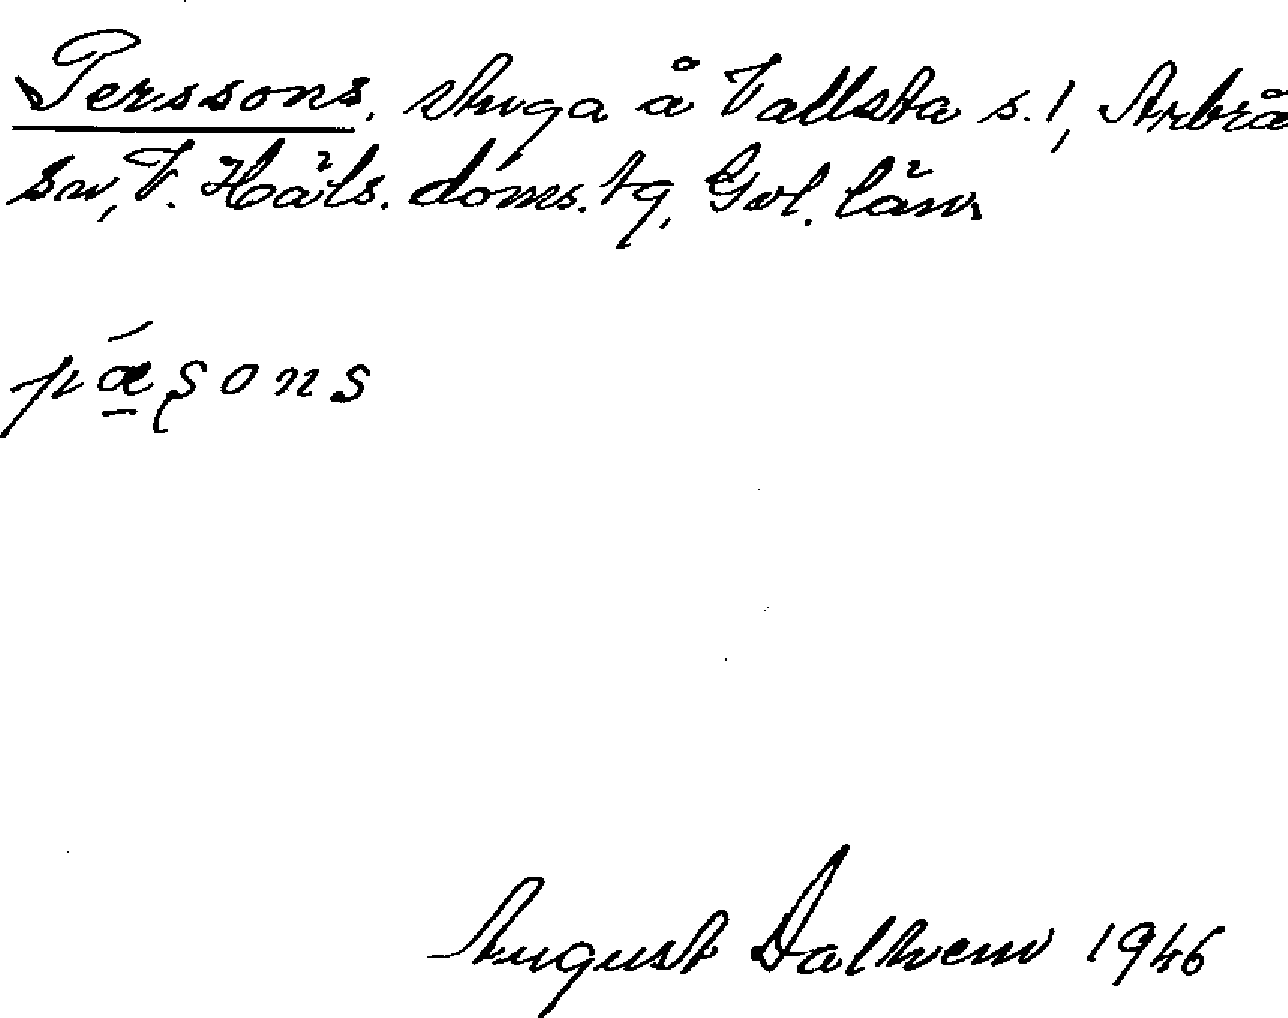 Perssons, stuga å Vallsta s. 1, Arbrå
sn, V. Häls. doms. tg, Gvl. län
pǽsons
August Dalhem 1946